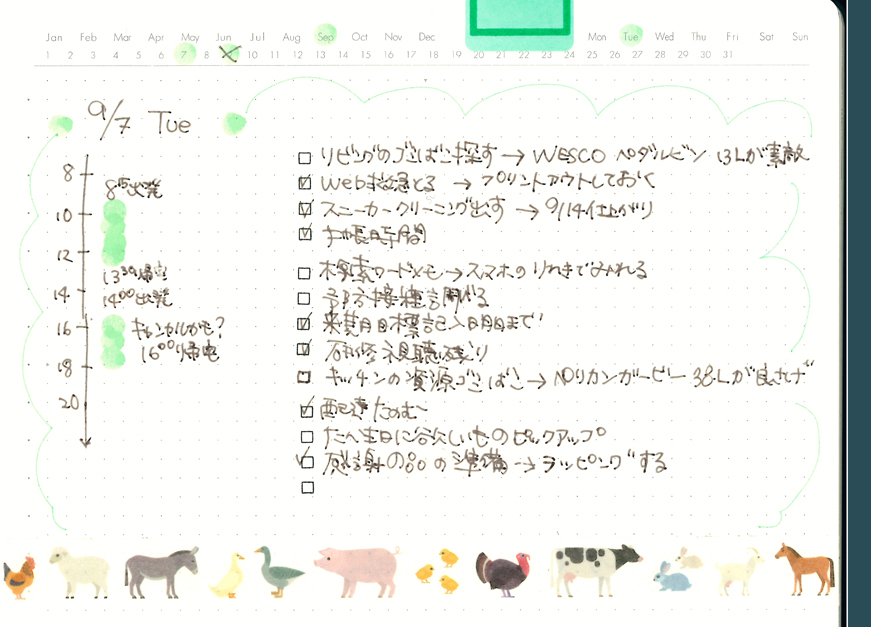 Jan Feb Mar Apr May Jun Jul Aug Sep Oct Nov Dec Mon Tue Wed Thu Fri Sat Sun
1 2 3 4 5 6 7 8 10 11 12 13 14 15 16 17 18 19 20 21 22 23 24 25 26 27 28 29 30 31
9/7 Tue
8
8:15出発
10
12
13:30帰宅
14
14:00出発
16
キャンセルかも?
16:00帰宅
18
20
リビングのゴミばこ探す → WESCO ペダルビン 13Lが素敵
Web 救急とる → プリントアウトしておく
スニーカークリーニング出す → 9/14仕上がり
手帳時間
検索ワードメモ → スマホのりれきでみれる
予防接種調べる
来週月目標記入 日まで
研修視聴 残り
キッチンの資源ゴミばこ → ペリカンガービー 38Lが良さげ
配達たのむ〜
たん生日に欲しいものピックアップ
感謝の品の準備 → ラッピングする